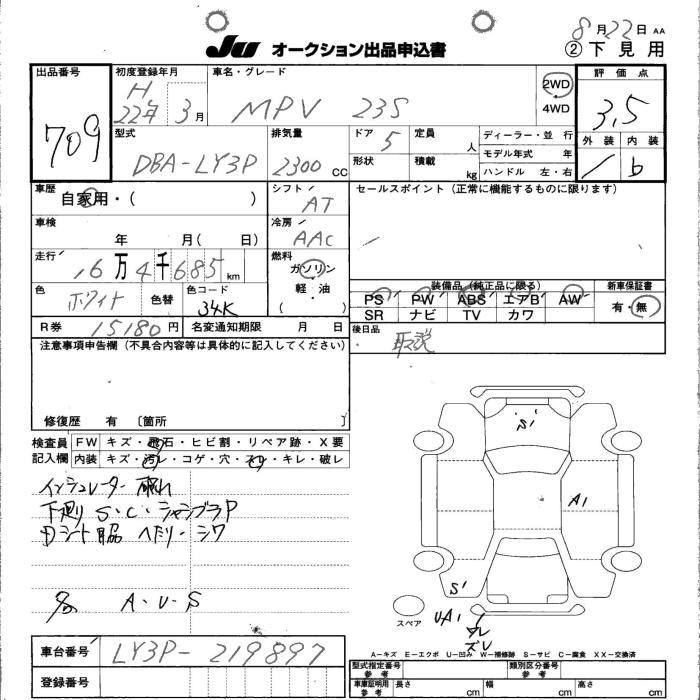 8月22日 AA
JU オークション出品申込書
② 下見用
出品番号 709
初度登録年月 H 22年 3月
車名・グレード MPV 23S
2WD
4WD
評価点 3.5
外装 内装 b
型式 DBA-LY3P
排気量 2300 CC
ドア 5
形状
定員 人
積載 kg
ディーラー・並 行
モデル年式 年
ハンドル 左・右
車歴 自家用・( )
シフト AT
セールスポイント(正常に機能するものに限ります)
車検 年 月( 日)
冷房 AAC
走行 16万4千685 km
燃料 ガソリン
軽・油
( )
色 ホワイト 色替 色コード 34K
装備品(純正品に限る)
新車保証書
PS PW ABS エアB AW
有・無
SR ナビ TV カワ
R券 15180円 名変通知期限 月 日
後日品 取説
注意事項申告欄(不具合内容等は具体的に記入してください)
修復歴 有 〔箇所 〕
検査員 FW キズ・飛石・ヒビ割・リペア跡・X要
記入欄 内装 キズ・汚レ・コゲ・穴・スレ・キレ・破レ
インシュレーター 破れ
下廻り S・C・シャシブラP
Dシート ヘタリ・シワ
A・U・S
S1
A1
S1
UA1
スペア
車台番号 LY3P-219897
登録番号
A−キズ E−エクボ U−凹み W−補修跡 S−サビ C−腐食 XX−交換済
型式指定番号 参考
類別区分番号 参考
車庫証明用 参考 長さ cm 幅 cm 高さ cm